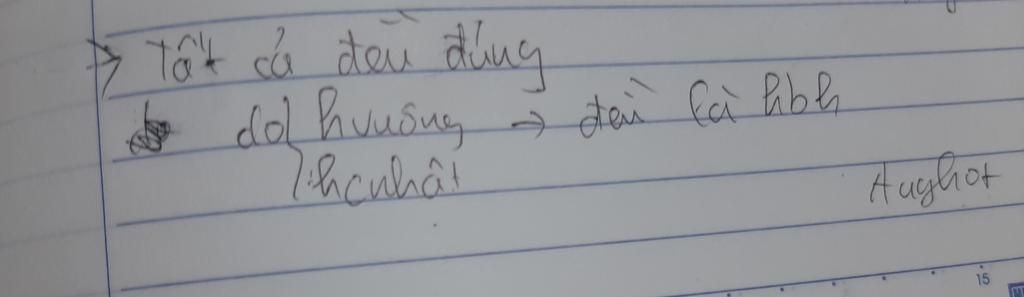 → Tất cả đều đúng
do { hvuông → đều là hbh
hcnhật
15